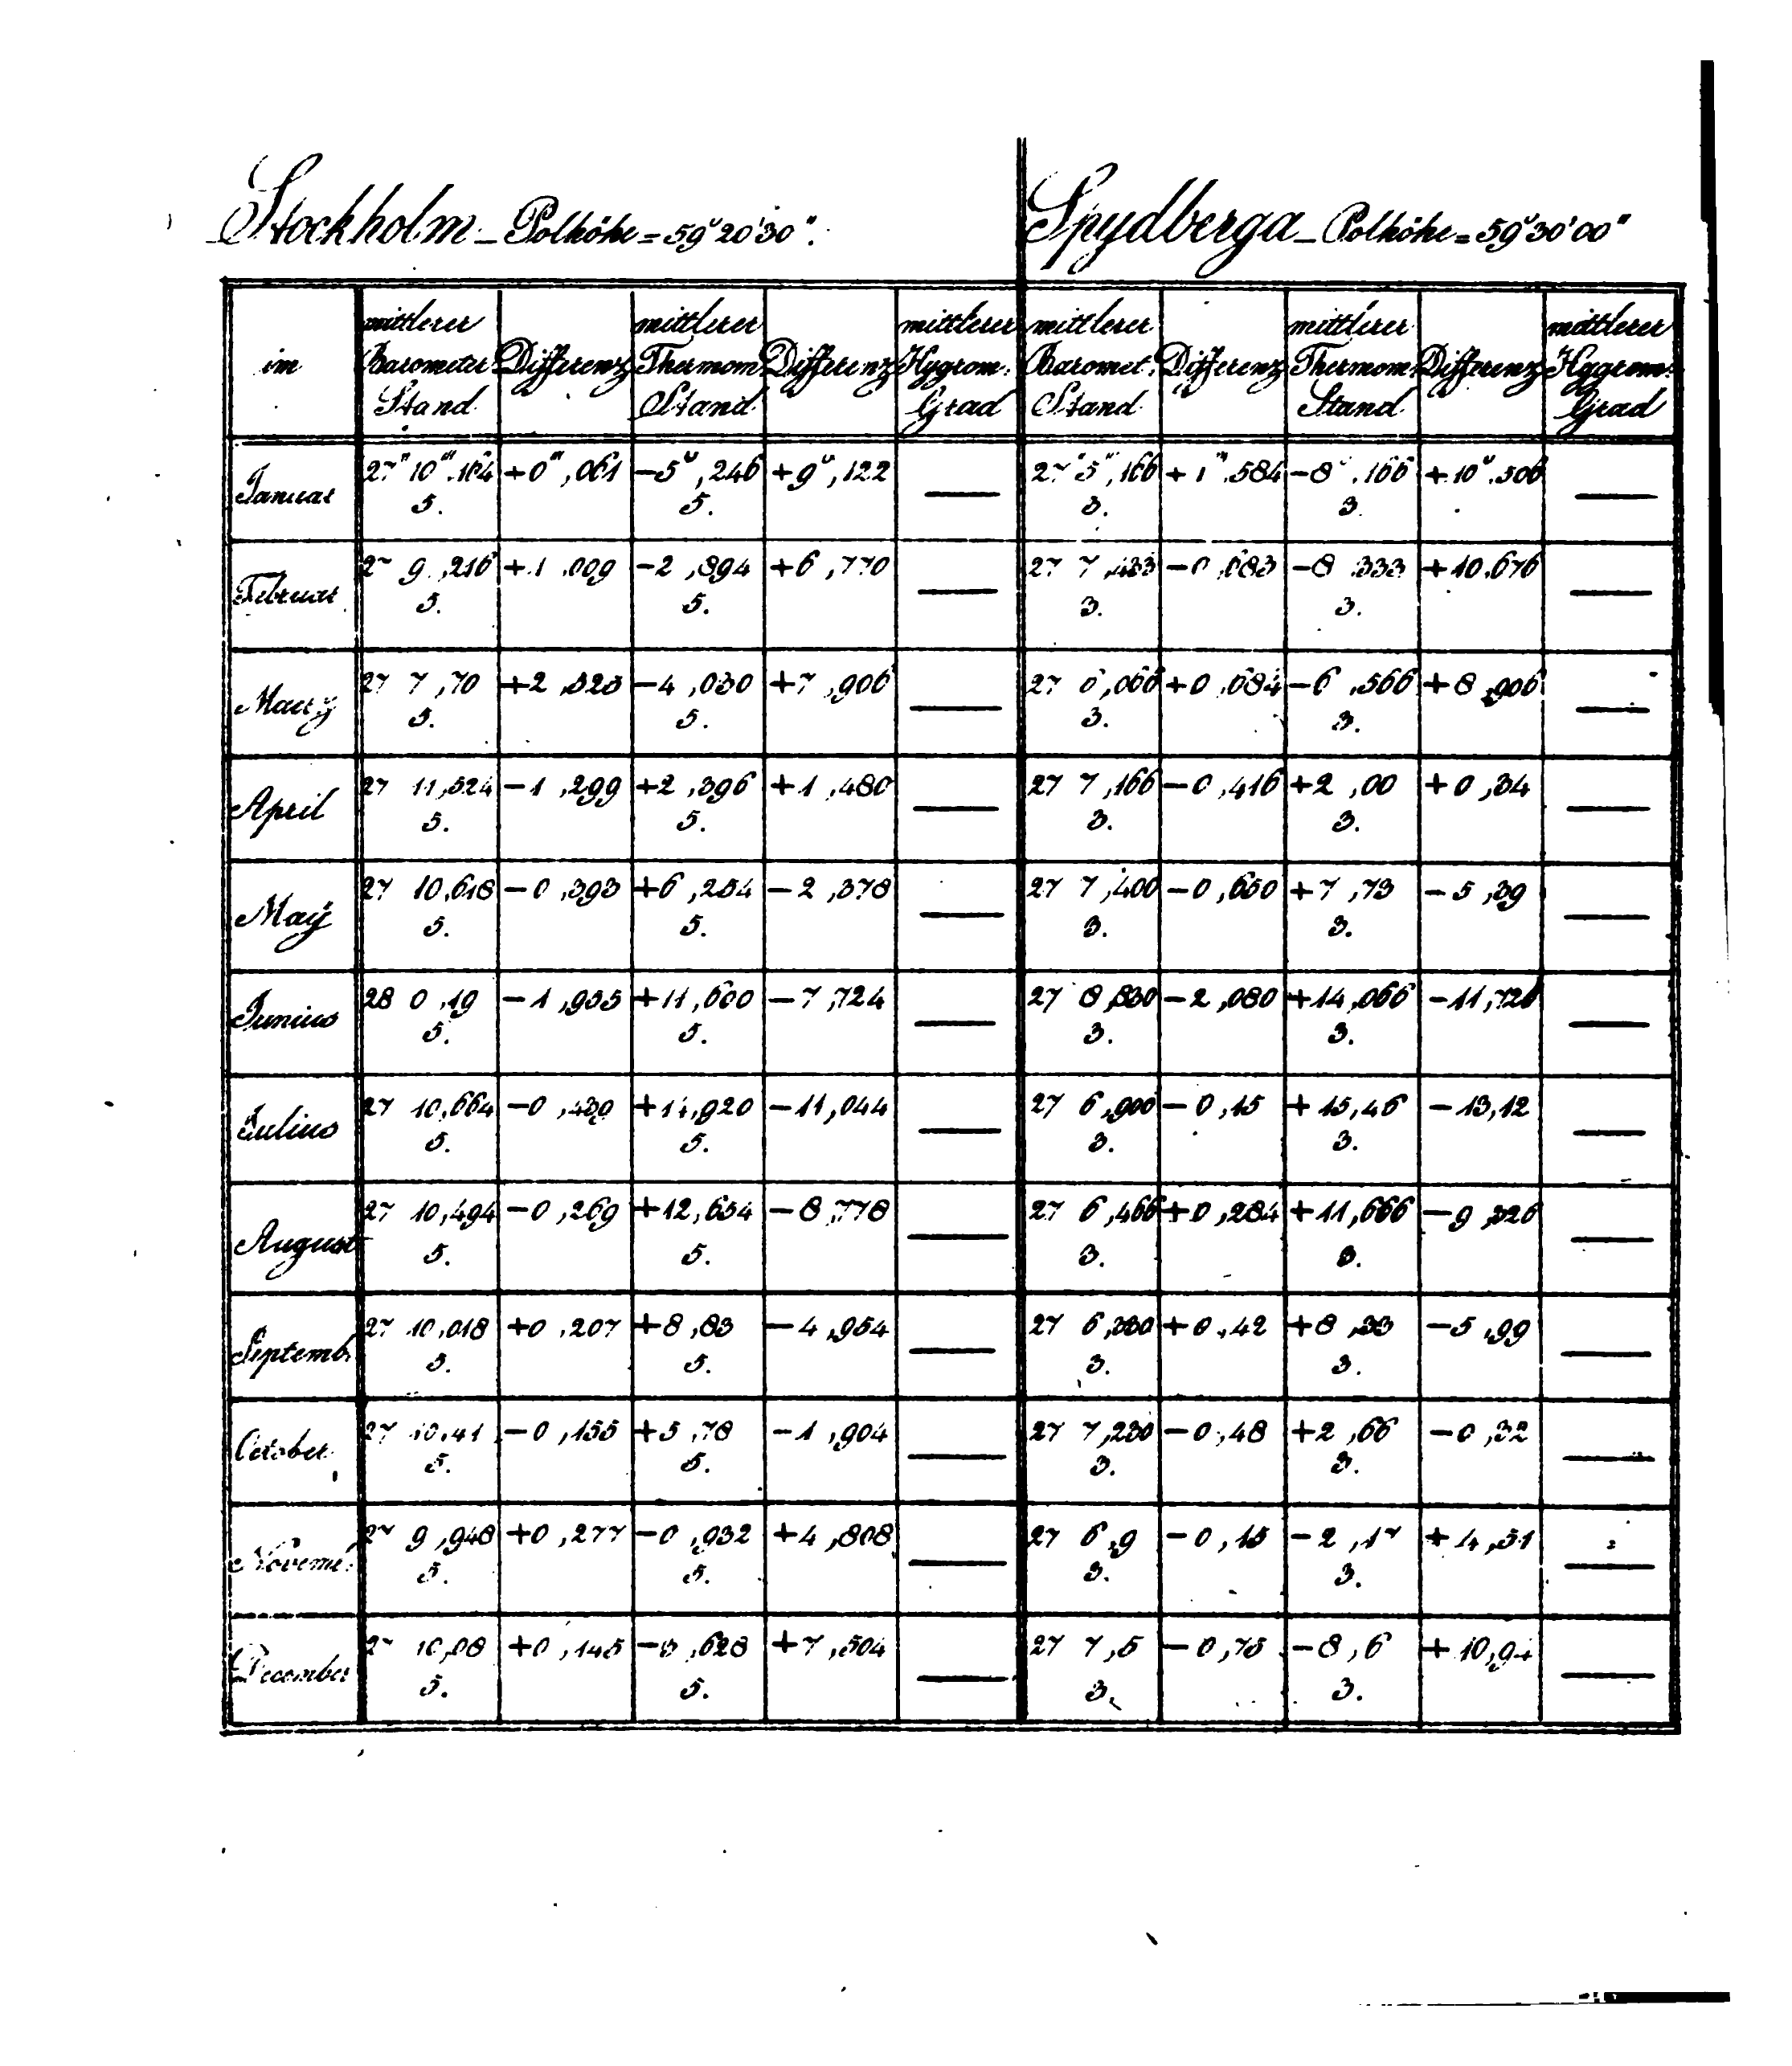 Stockholm – Polhöhe = 59° 20' 30". Spydberga – Polhöhe = 59° 30' 00"
im mittlerer Barometer Stand Differenz mittlerer Thermom. Stand Differenz mittlerer Hygrom. Grad mittlerer Baromet. Stand Differenz mittlerer Thermom. Stand Differenz mittlerer Hygrom. Grad
Januar 27" 10''',164 +0''',061 –5°,246 +9°,122 — 27" 5''',166 +1''',584 –8°,166 +10°,506 —
5. 5. 3. 3.
Februar 27 9,216 +1,009 –2,894 +6,770 — 27 7,433 –0,683 –8,333 +10,676 —
5. 5. 3. 3.
Marty 27 7,70 +2,525 –4,030 +7,906 — 27 6,066 +0,684 –6,566 +8,906 —
5. 5. 3. 3.
April 27 11,524 –1,299 +2,396 +1,480 — 27 7,166 –0,416 +2,00 +0,34 —
5. 5. 3. 3.
Maÿ 27 10,618 –0,393 +6,254 –2,378 — 27 7,400 –0,650 +7,73 –5,39 —
5. 5. 3. 3.
Junius 28 0,19 –1,955 +11,600 –7,724 — 27 8,830 –2,080 +14,066 –11,726 —
5. 5. 3. 3.
Julius 27 10,664 –0,439 +14,920 –11,044 — 27 6,900 –0,15 +15,46 –13,12 —
5. 5. 3. 3.
August 27 10,494 –0,269 +12,654 –8,778 — 27 6,466 +0,284 +11,666 –9,326 —
5. 5. 3. 3.
Septemb. 27 10,018 +0,207 +8,83 –4,954 — 27 6,330 +0,42 +8,33 –5,99 —
5. 5. 3. 3.
October 27 10,41 –0,155 +5,78 –1,904 — 27 7,230 –0,48 +2,66 –0,32 —
5. 5. 3. 3.
Novemb. 27 9,948 +0,277 –0,932 +4,808 — 27 6,9 –0,15 –2,17 +4,51 —
5. 5. 3. 3.
December 27 10,08 +0,145 –3,628 +7,504 — 27 7,5 –0,75 –8,6 +10,94 —
5. 5. 3. 3.